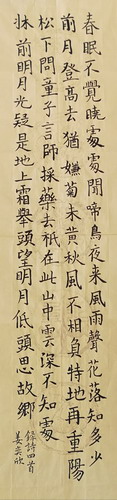 春眠不覺曉處處聞啼鳥夜来風雨聲花落知多少
前月登高去猶嫌菊未黄秋風不相負特地再重陽
松下問童子言師採藥去衹在此山中雲深不知處
牀前明月光疑是地上霜舉頭望明月低頭思故鄉
錄詩四首
姜英欣